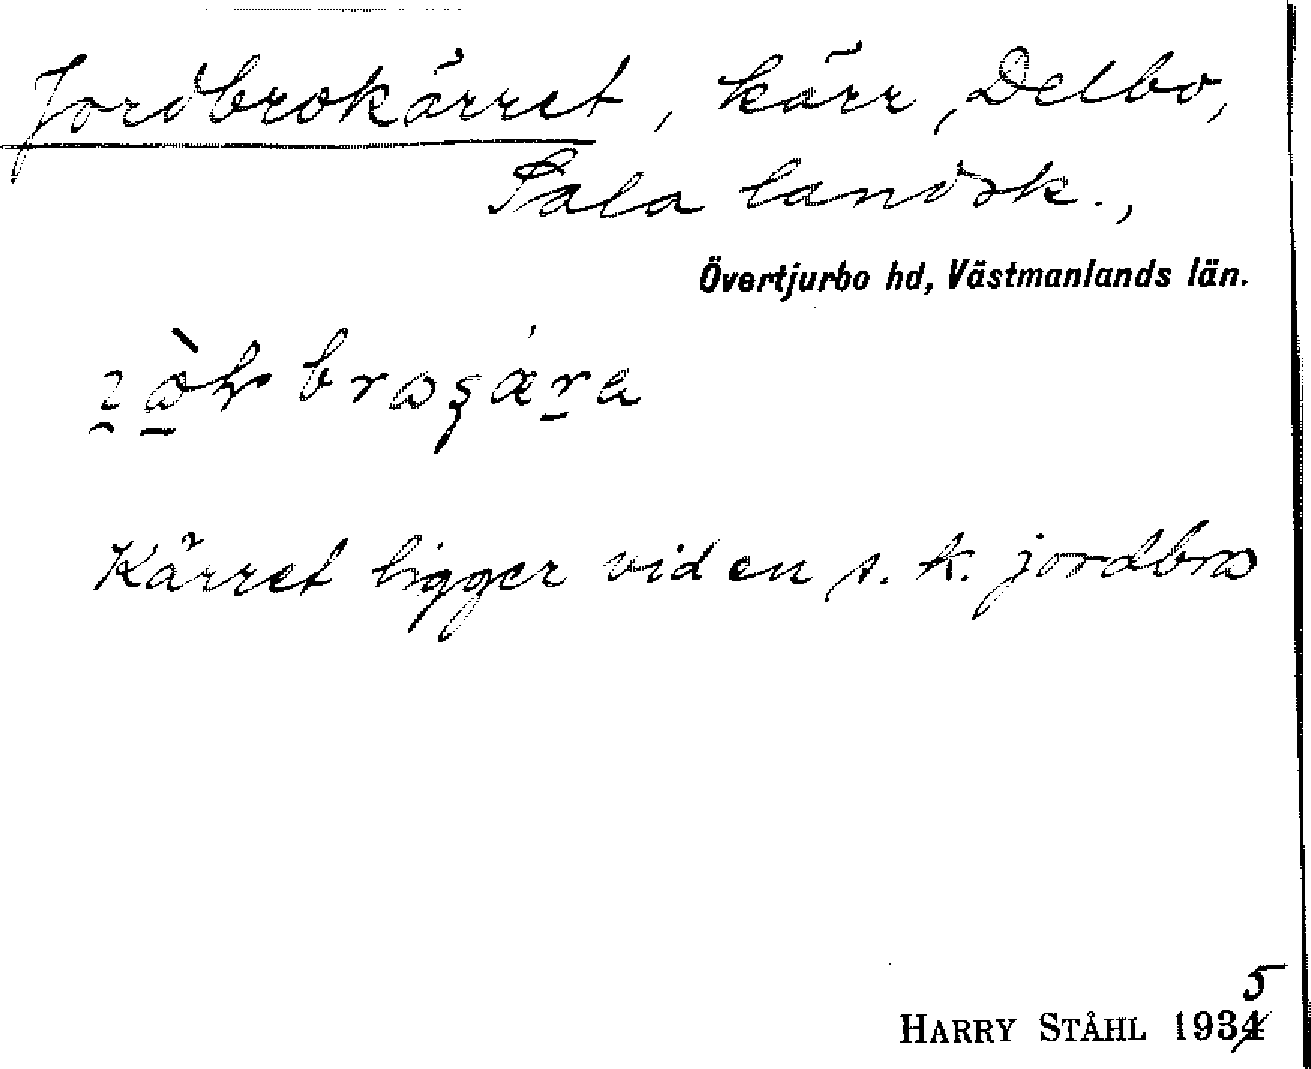 Jordbrokärret, kärr, Delbo,
Sala landsk.,
Övertjurbo hd, Västmanlands län.
Kärret ligger vid en s. k. jordbro
5
HARRY STÅHL 1934